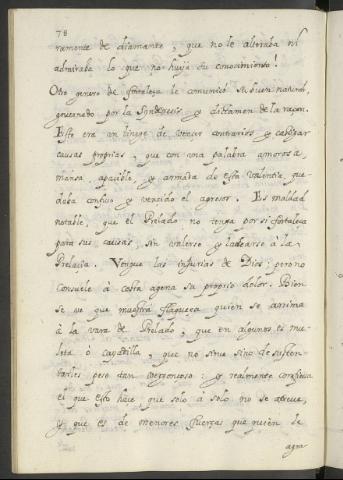 78
ramente de diamante, que no le alteraba ni
admiraba lo que no huya su conocimiento!
Otro genero de fortaleza le comunicó su buen natural,
governado por la Synderesis y dictamen de la raçon.
Este era un linage de vençer contrarios y castigar
causas proprias, que con una palabra amorosa,
mansa apacible, y armada de esta valentia, que-
daba confuso y vencido el agresor. Es maldad
notable, que el Prelado no tenga por si fortaleza
para sus causas, sin valerse y ladearse à la
Prelacia. Vengue las injurias de Dios; pero no
consuele à costa agena su proprio dolor. Bien
se ve que muestra flaqueza quien se arrima
à la vara de Prelado, que en algunos es mu-
leta ó capatilla, que no sirve sino de susten-
tarles peso tan vergonçoso: y realmente confiesa
el que esto haçe que solo à solo no se atreve,
y que es de menores fuerças que quien le
agra-